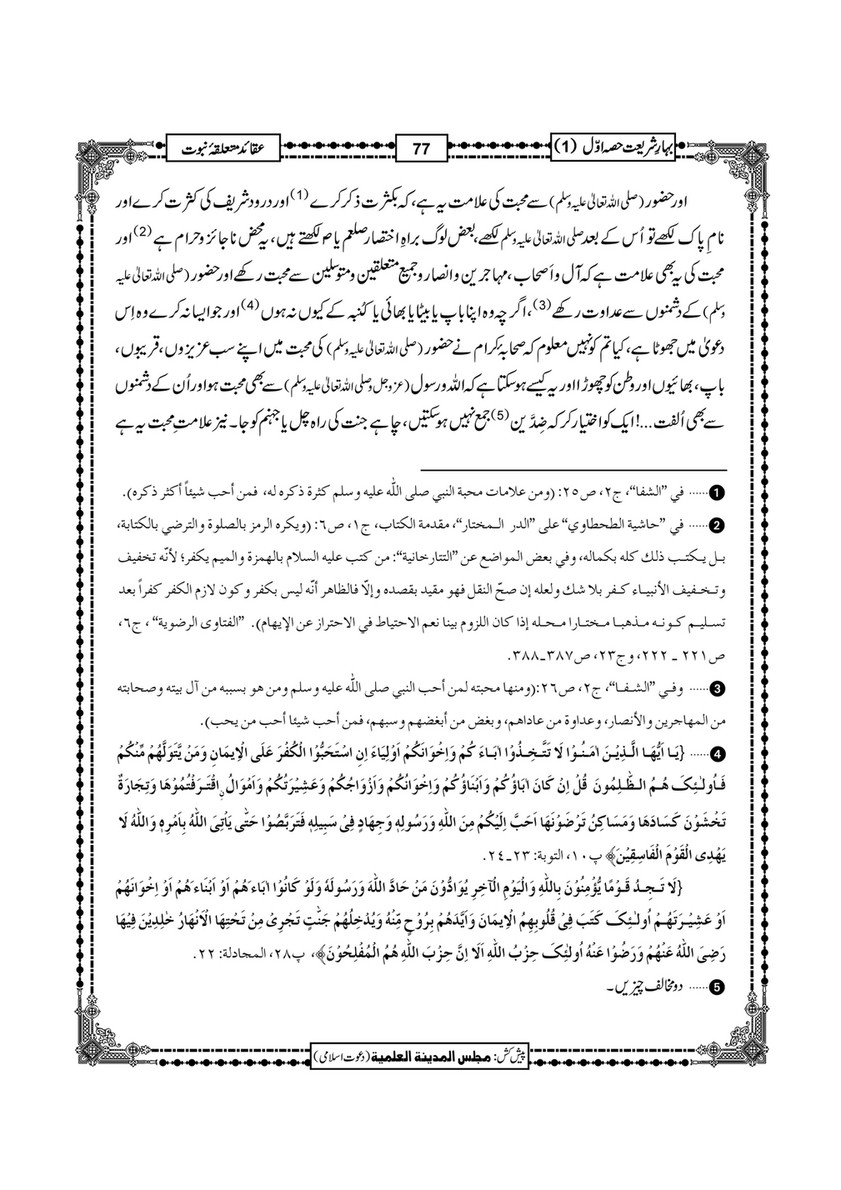 بہارِشریعت حصہ اوّل (1)
77
عقائد متعلقۂ نبوت
اور حضور (صلی اللہ تعالیٰ علیہ وسلم) سے محبت کی علامت یہ ہے، کہ بکثرت ذکر کرے (1) اور درود شریف کی کثرت کرے اور
نامِ پاک لکھے تو اُس کے بعد صلی اللہ تعالیٰ علیہ وسلم لکھے، بعض لوگ براہِ اختصار صلعم یا ص لکھتے ہیں، یہ محض ناجائز وحرام ہے (2) اور
محبت کی یہ بھی علامت ہے کہ آل و اَصحاب، مہاجرین و انصار و جمیع متعلقین و متوسلین سے محبت رکھے اور حضور (صلی اللہ تعالیٰ علیہ
وسلم) کے دشمنوں سے عداوت رکھے (3)، اگرچہ وہ اپنا باپ یا بیٹا یا بھائی یا کُنبہ کے کیوں نہ ہوں (4) اور جو ایسا نہ کرے وہ اِس
دعویٰ میں جھوٹا ہے، کیا تم کو نہیں معلوم کہ صحابۂ کرام نے حضور (صلی اللہ تعالیٰ علیہ وسلم) کی محبت میں اپنے سب عزیزوں، قریبوں،
باپ، بھائیوں اور وطن کو چھوڑا اور یہ کیسے ہو سکتا ہے کہ اللہ و رسول (عزوجل وصلی اللہ تعالیٰ علیہ وسلم) سے بھی محبت ہو اور اُن کے دشمنوں
سے بھی اُلفت...! ایک کو اختیار کر کہ ضِدَّین (5) جمع نہیں ہو سکتیں، چاہے جنت کی راہ چل یا جہنم کو جا۔ نیز علامتِ محبت یہ ہے
1 ...... في ”الشفا“، ج۲، ص۲۵: (ومن علامات محبة النبي صلى الله عليه وسلم كثرة ذكره له، فمن أحب شيئاً أكثر ذكره).
2 ...... في ”حاشية الطحطاوي“ على ”الدر المختار“، مقدمة الكتاب، ج۱، ص۶: (ويكره الرمز بالصلوة والترضي بالكتابة،
بل يكتب ذلك كله بكماله، وفي بعض المواضع عن ”التتارخانية“: من كتب عليه السلام بالهمزة والميم يكفر؛ لأنّه تخفيف
وتخفيف الأنبياء كفر بلا شك ولعله إن صحّ النقل فهو مقيد بقصده وإلّا فالظاهر أنّه ليس بكفر وكون لازم الكفر كفراً بعد
تسليم كونه مذهبا مختارا محله إذا كان اللزوم بينا نعم الاحتياط في الاحتراز عن الإيهام). ”الفتاوى الرضوية“، ج۶،
ص۲۲۱ ـ ۲۲۲، وج۲۳، ص۳۸۷ـ۳۸۸.
3 ...... وفي ”الشفا“، ج۲، ص۲۶:(ومنها محبته لمن أحب النبي صلى الله عليه وسلم ومن هو بسببه من آل بيته وصحابته
من المهاجرين والأنصار، وعداوة من عاداهم، وبغض من أبغضهم وسبهم، فمن أحب شيئا أحب من يحب).
4 ...... {يَا اَيُّهَا الَّذِيْنَ اٰمَنُوْا لَا تَتَّخِذُوْا اٰبَاءَ كُمْ وَاِخْوَانَكُمْ اَوْلِيَاءَ اِنِ اسْتَحَبُّوْا الْكُفْرَ عَلَى الْاِيْمَانِ وَمَنْ يَّتَوَلَّهُمْ مِّنْكُمْ
فَاُولٰئِكَ هُمُ الظّٰلِمُوْنَ قُلْ اِنْ كَانَ اٰبَاؤُكُمْ وَاَبْنَاؤُكُمْ وَاِخْوَانُكُمْ وَاَزْوَاجُكُمْ وَعَشِيْرَتُكُمْ وَاَمْوَالُ نِ اقْتَرَفْتُمُوْهَا وَتِجَارَةٌ
تَخْشَوْنَ كَسَادَهَا وَمَسَاكِنُ تَرْضَوْنَهَا اَحَبَّ اِلَيْكُمْ مِنَ اللّٰهِ وَرَسُوْلِهٖ وَجِهَادٍ فِيْ سَبِيْلِهٖ فَتَرَبَّصُوْا حَتّٰى يَاْتِيَ اللّٰهُ بِاَمْرِهٖ وَاللّٰهُ لَا
يَهْدِى الْقَوْمَ الْفَاسِقِيْنَ} پ۱۰، التوبة: ۲۳ـ۲۴.
{لَا تَجِدُ قَوْمًا يُّؤْمِنُوْنَ بِاللّٰهِ وَالْيَوْمِ الْاٰخِرِ يُوَادُّوْنَ مَنْ حَادَّ اللّٰهَ وَرَسُوْلَهٗ وَلَوْ كَانُوْا اٰبَاءَهُمْ اَوْ اَبْنَاءَهُمْ اَوْ اِخْوَانَهُمْ
اَوْ عَشِيْرَتَهُمْ اُولٰئِكَ كَتَبَ فِيْ قُلُوْبِهِمُ الْاِيْمَانَ وَاَيَّدَهُمْ بِرُوْحٍ مِّنْهُ وَيُدْخِلُهُمْ جَنّٰتٍ تَجْرِيْ مِنْ تَحْتِهَا الْاَنْهَارُ خٰلِدِيْنَ فِيْهَا
رَضِيَ اللّٰهُ عَنْهُمْ وَرَضُوْا عَنْهُ اُولٰئِكَ حِزْبُ اللّٰهِ اَلَا اِنَّ حِزْبَ اللّٰهِ هُمُ الْمُفْلِحُوْنَ}، پ۲۸، المجادلة: ۲۲.
5 ...... دو مخالف چیزیں۔
پیش کش: مجلس المدينة العلمية (دعوت اسلامی)